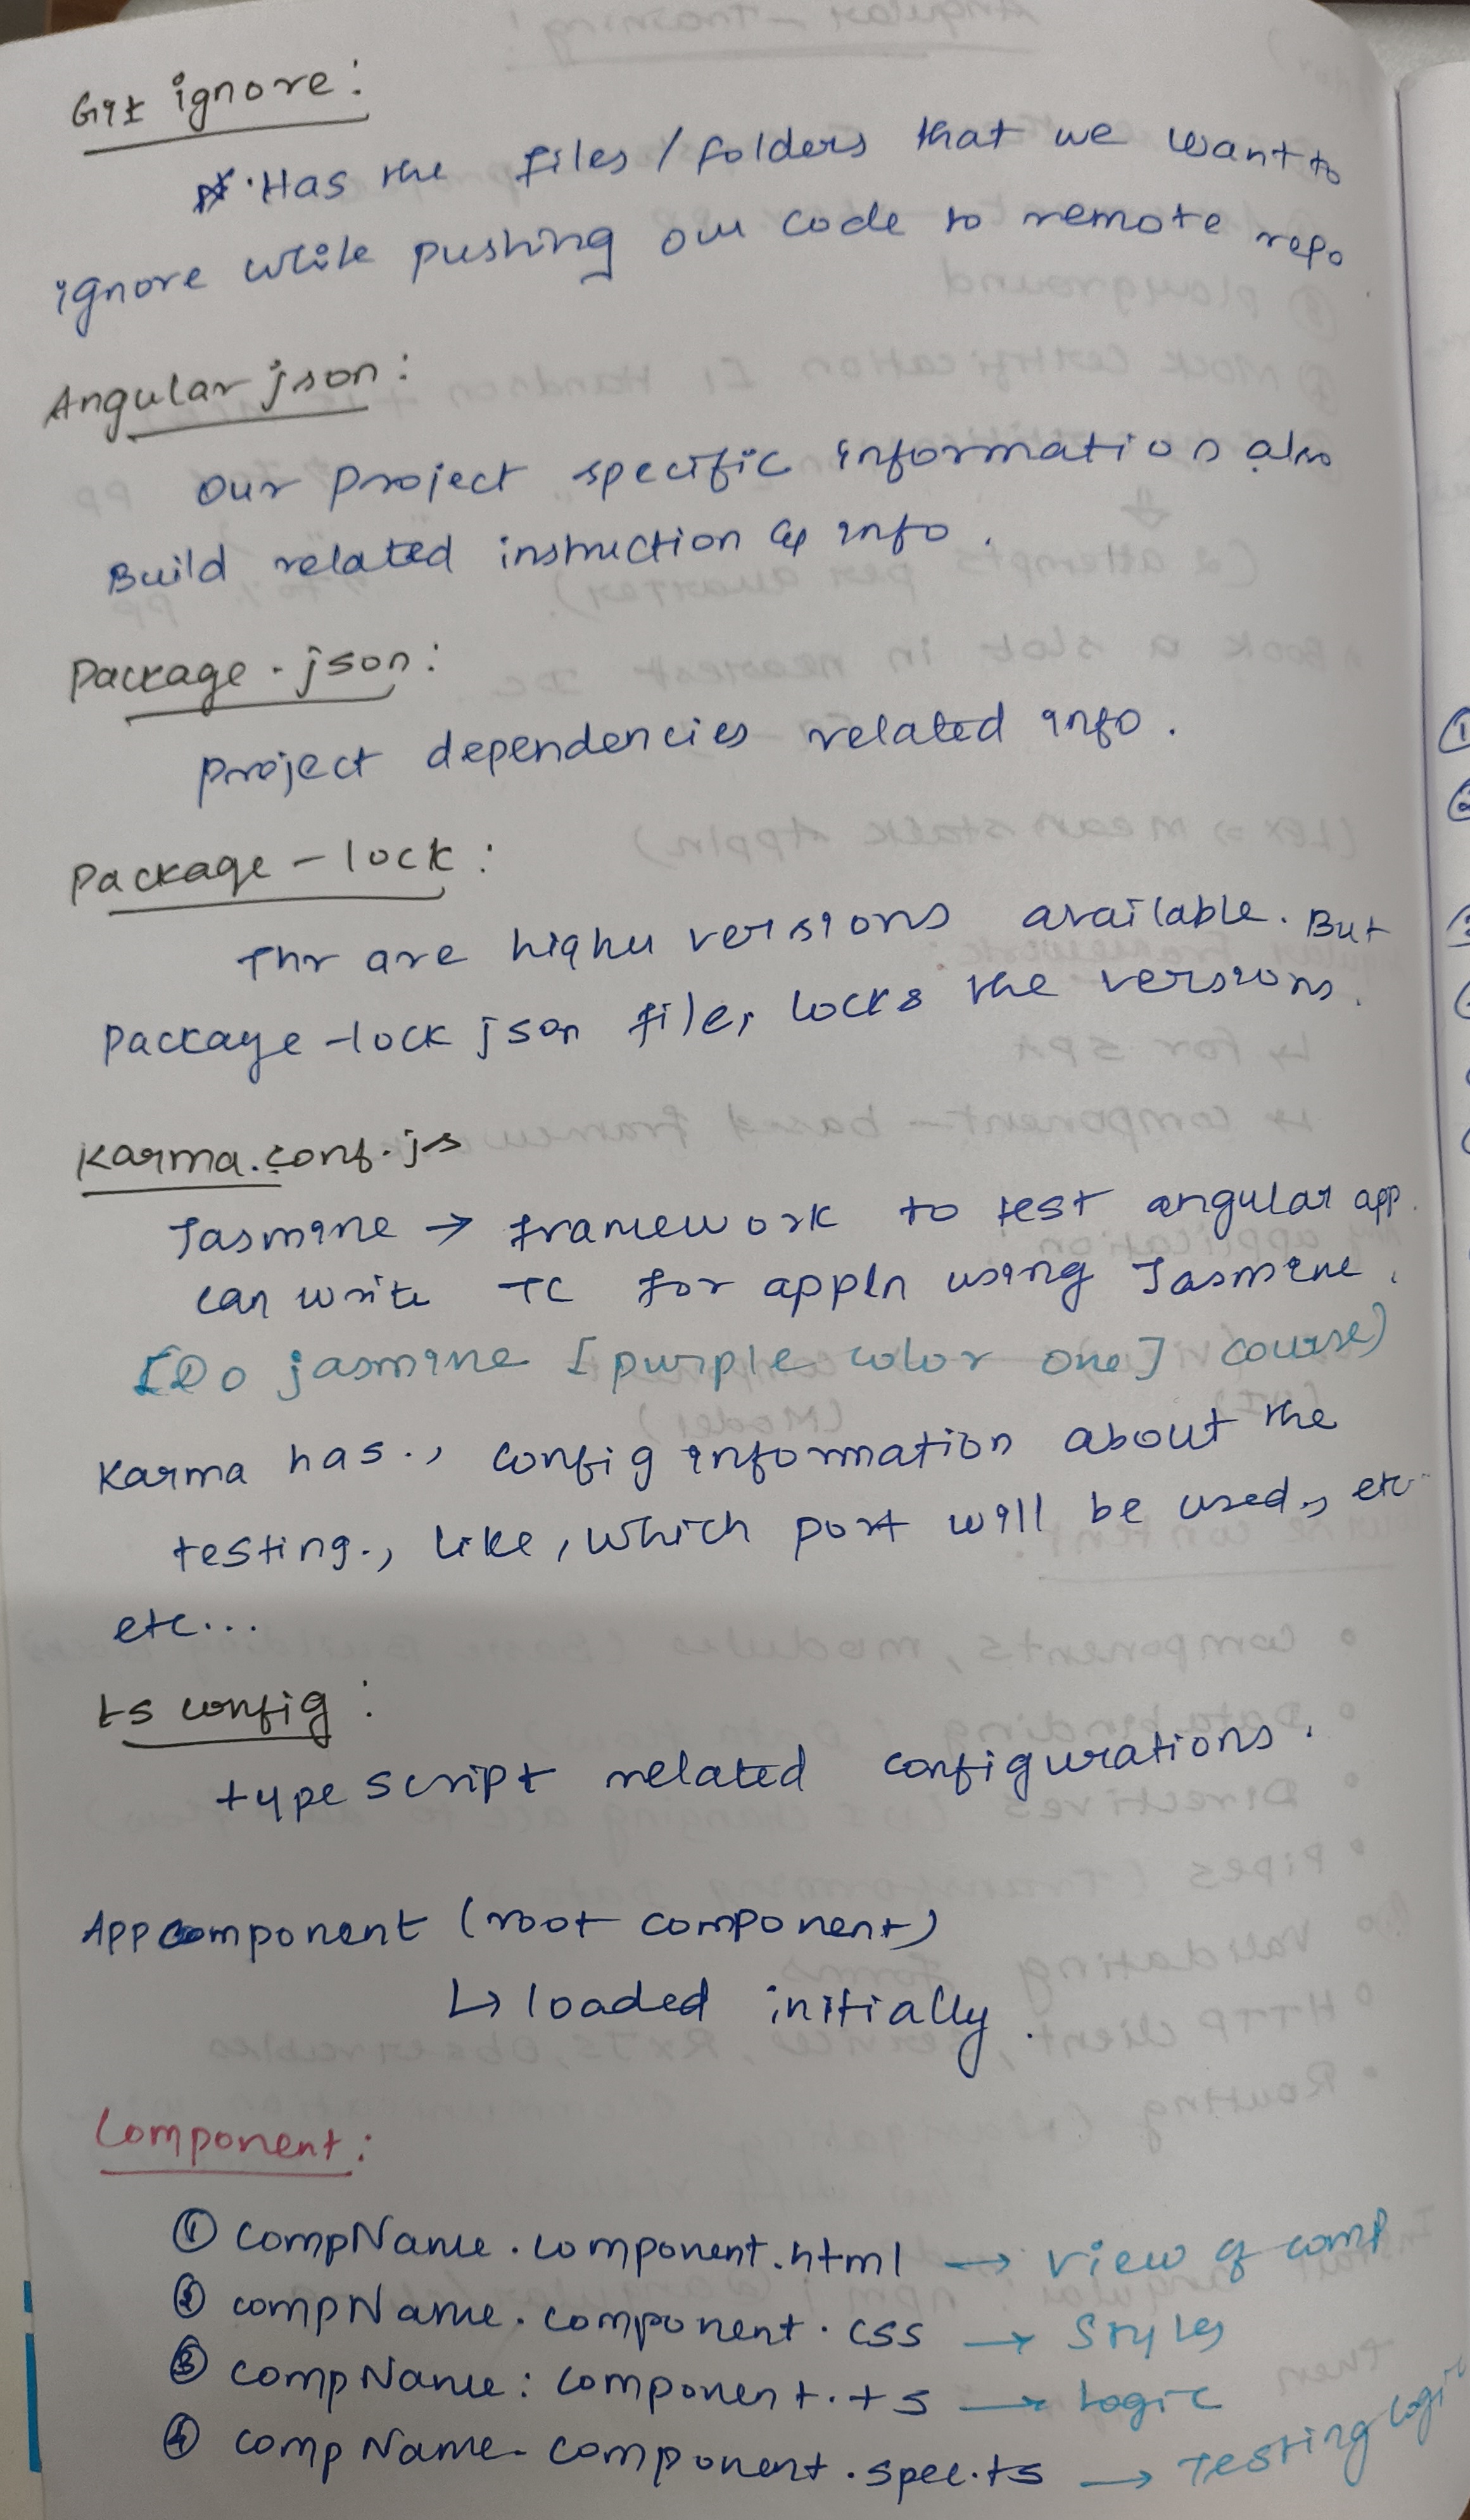 Git ignore:
Has the files / folders that we want to
ignore while pushing our code to remote repo
Angular json:
Our Project specific information also
Build related instruction & info.
Package.json:
project dependencies related info.
Package-lock:
Thr are higher versions available. But
package-lock json file, locks the versions.
Karma.conf.js
Jasmine → framework to test angular app.
can write TC for appln using Jasmine.
[Do jasmine [purple color one] course)
Karma has., config information about the
testing., like, which port will be used., etc
etc...
ts config:
type script related configurations.
App component (root component)
↳ loaded initially.
Component:
① compName.component.html → view of comp
② compName.component.css → Styles
③ compName:component.ts → Logic
④ compName.component.spec.ts → Testing logic